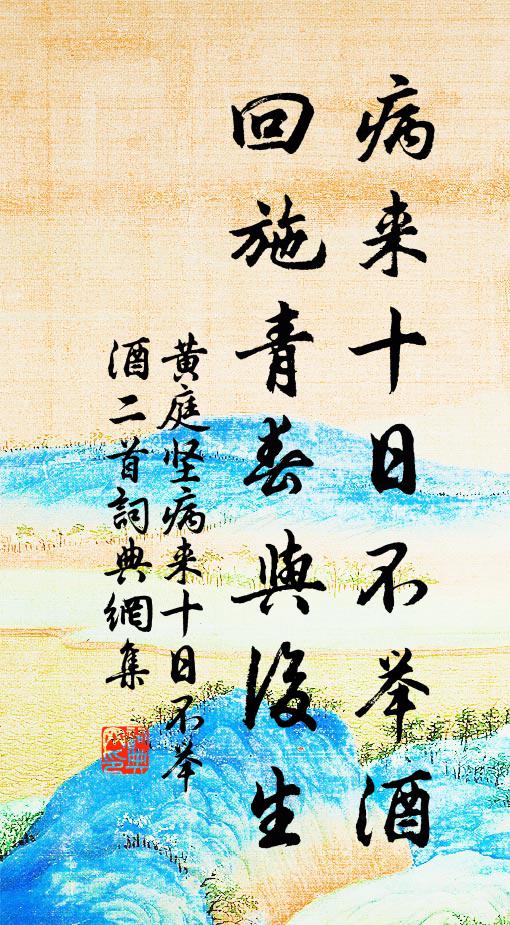 病来十日不举酒
回施青春與後生
黄庭坚病来十日不举
酒二首詞典網集